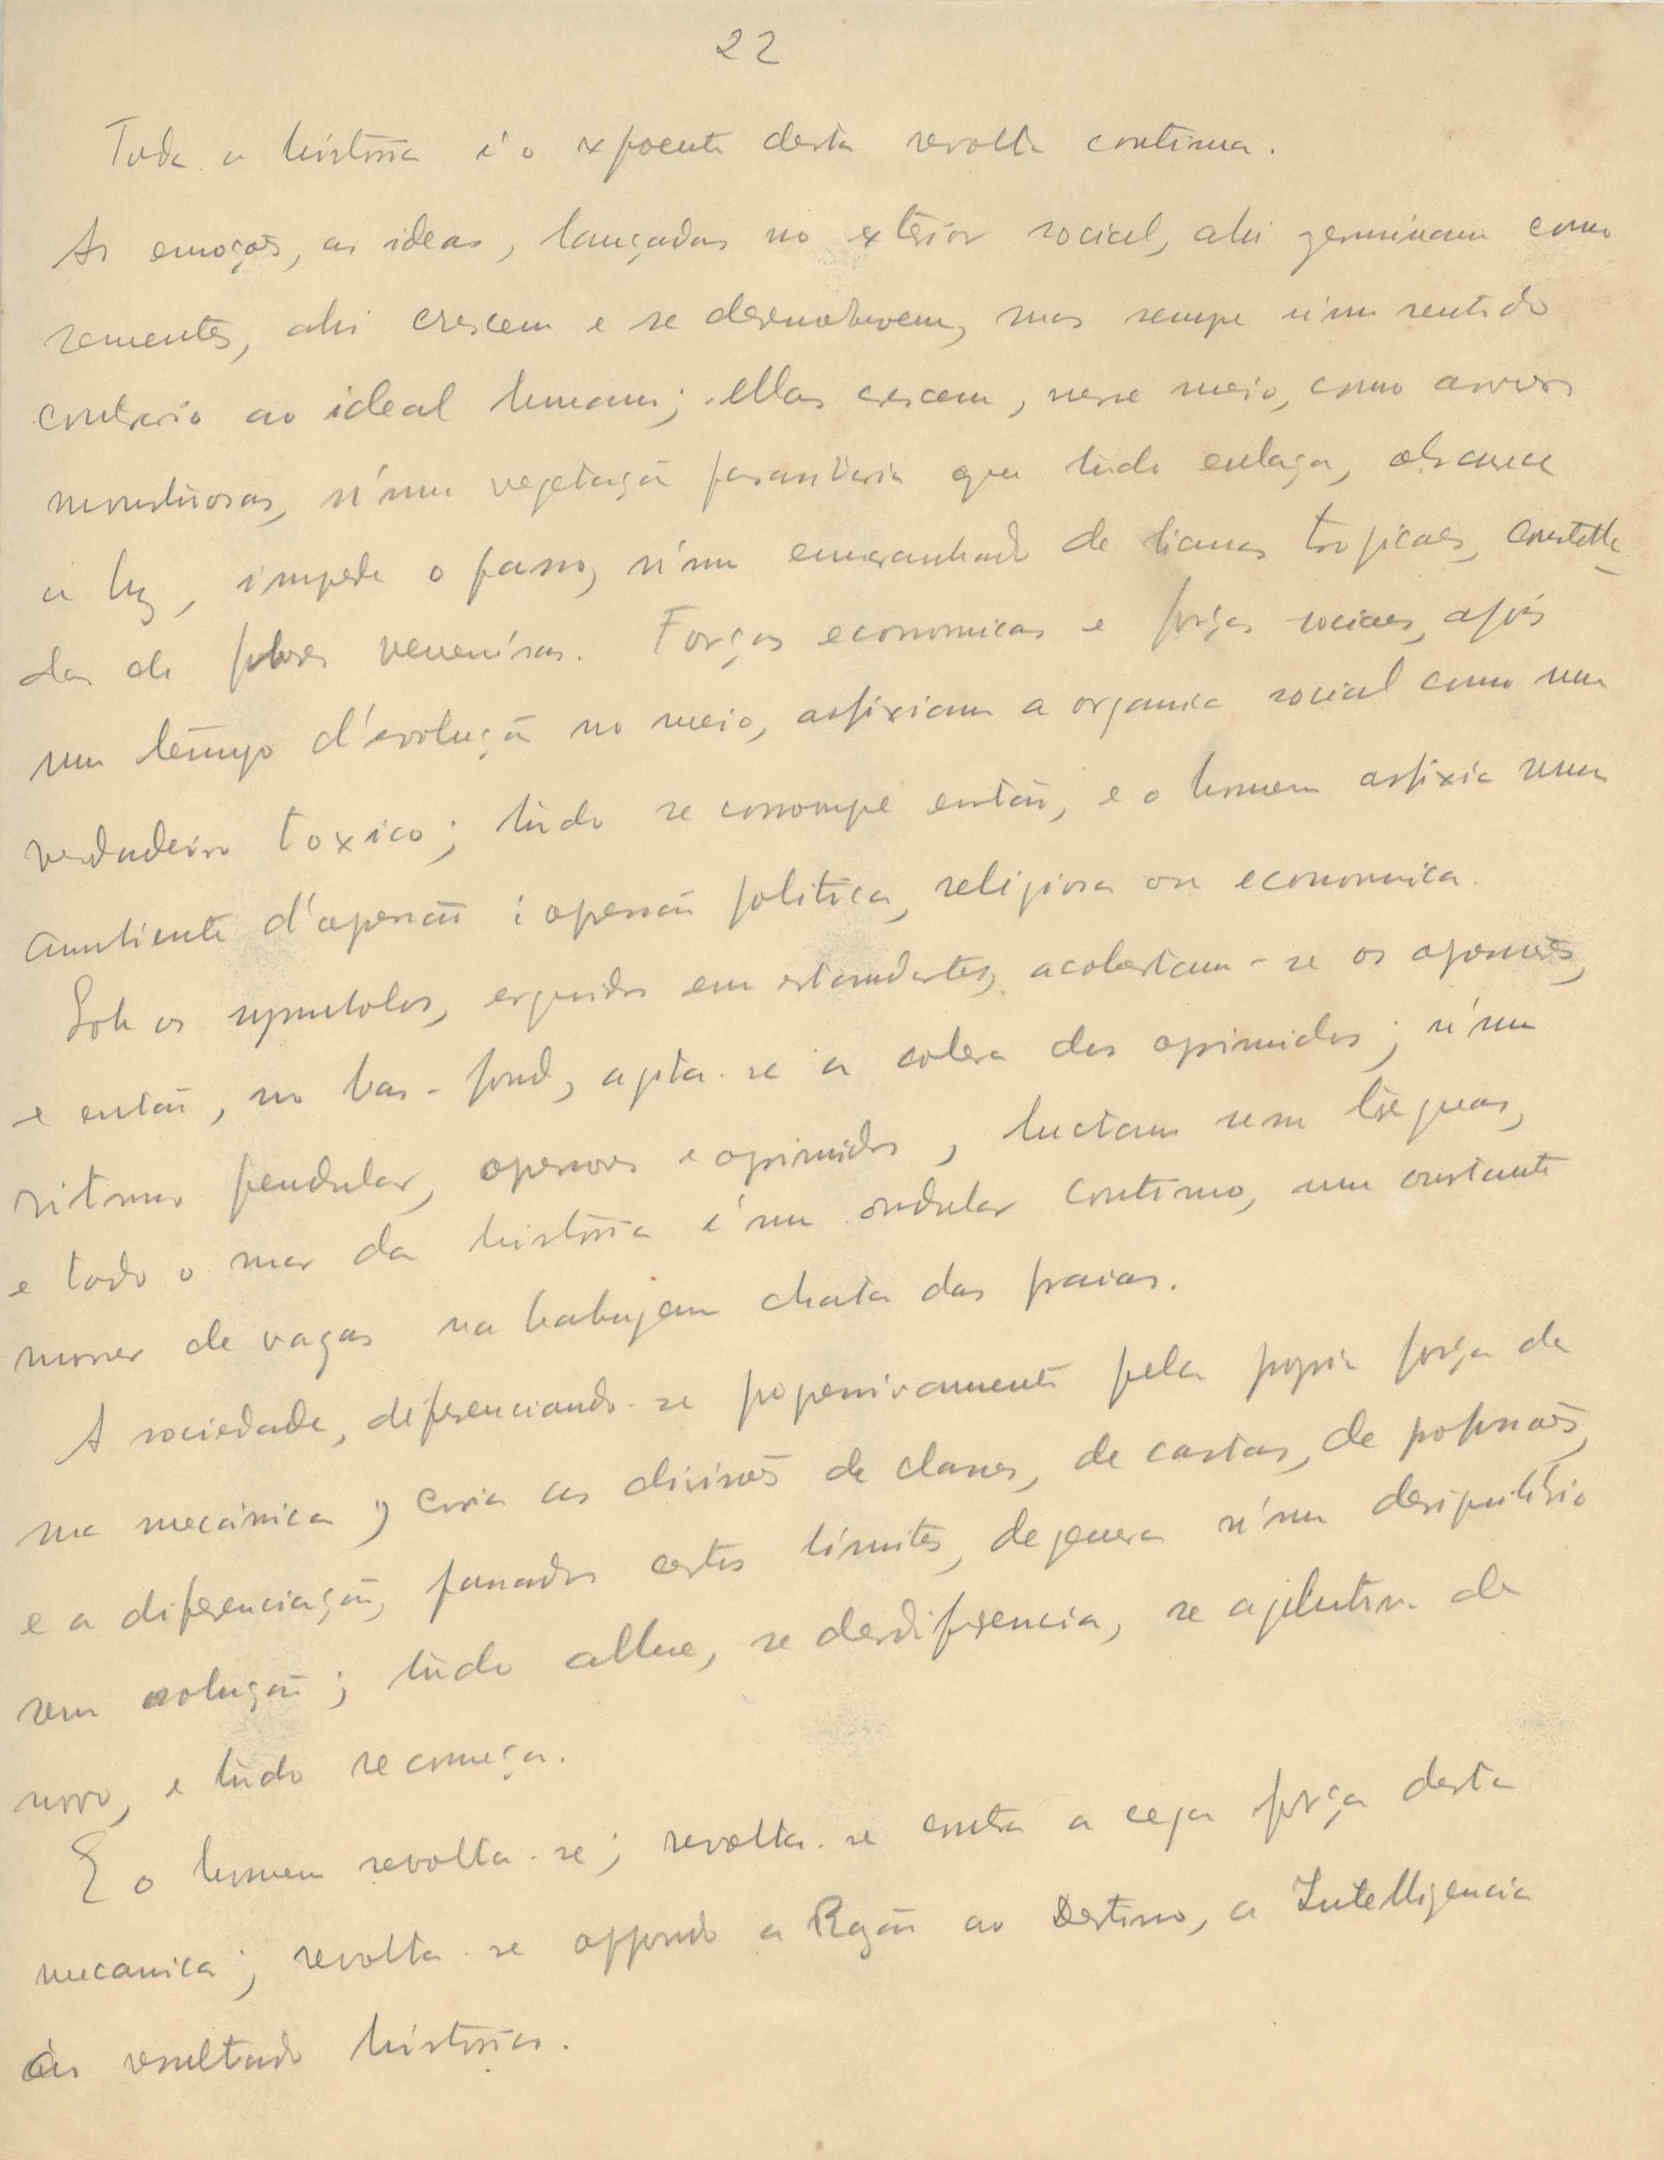 22
Toda a história é o expoente desta revolta continua.
As emoções, as ideas, lançadas no exterior social, ahi germinam como
sementes, ahi crescem e se desenvolvem, mas sempre n'um sentido
contrario ao ideal humano; ellas crescem, nesse meio, como arvores
monstruosas, n'uma vegetação parasitaria que tudo enlaça, obscurece
a luz, impede o passo, n'um emaranhado de lianas tropicaes, constella-
das de flores venenosas. Forças economicas e forças sociaes, após
um tempo d'evolução no meio, asfixiam a organica social como um
verdadeiro toxico; tudo se corrompe então, e o homem asfixia num
ambiente d'opressão: opressão politica, religiosa ou economica.
Sob os symbolos, erguidos em estandartes, acobertam-se os opressores,
e então, no bas-fond, agita-se a colera dos oprimidos; n'um
ritmo pendular, opressores e oprimidos, luctam sem treguas,
e todo o mar da história é um ondular continuo, um constante
morrer de vagas na babugem chata das praias.
A sociedade, diferenciando-se progressivamente pela propria força da
sua mecánica, cria as divisões de classes, de castas, de profissões,
e a diferenciação, passados certos límites, degenera n'um desiquilibrio
sem solução; tudo allue, se desdiferencia, se aglutina de
novo, e tudo recomeça.
E o homem revolta-se; revolta-se contra a cega força desta
mecanica; revolta-se oppondo a Razão ao Destino, a Intelligencia
ao resultado histórico.